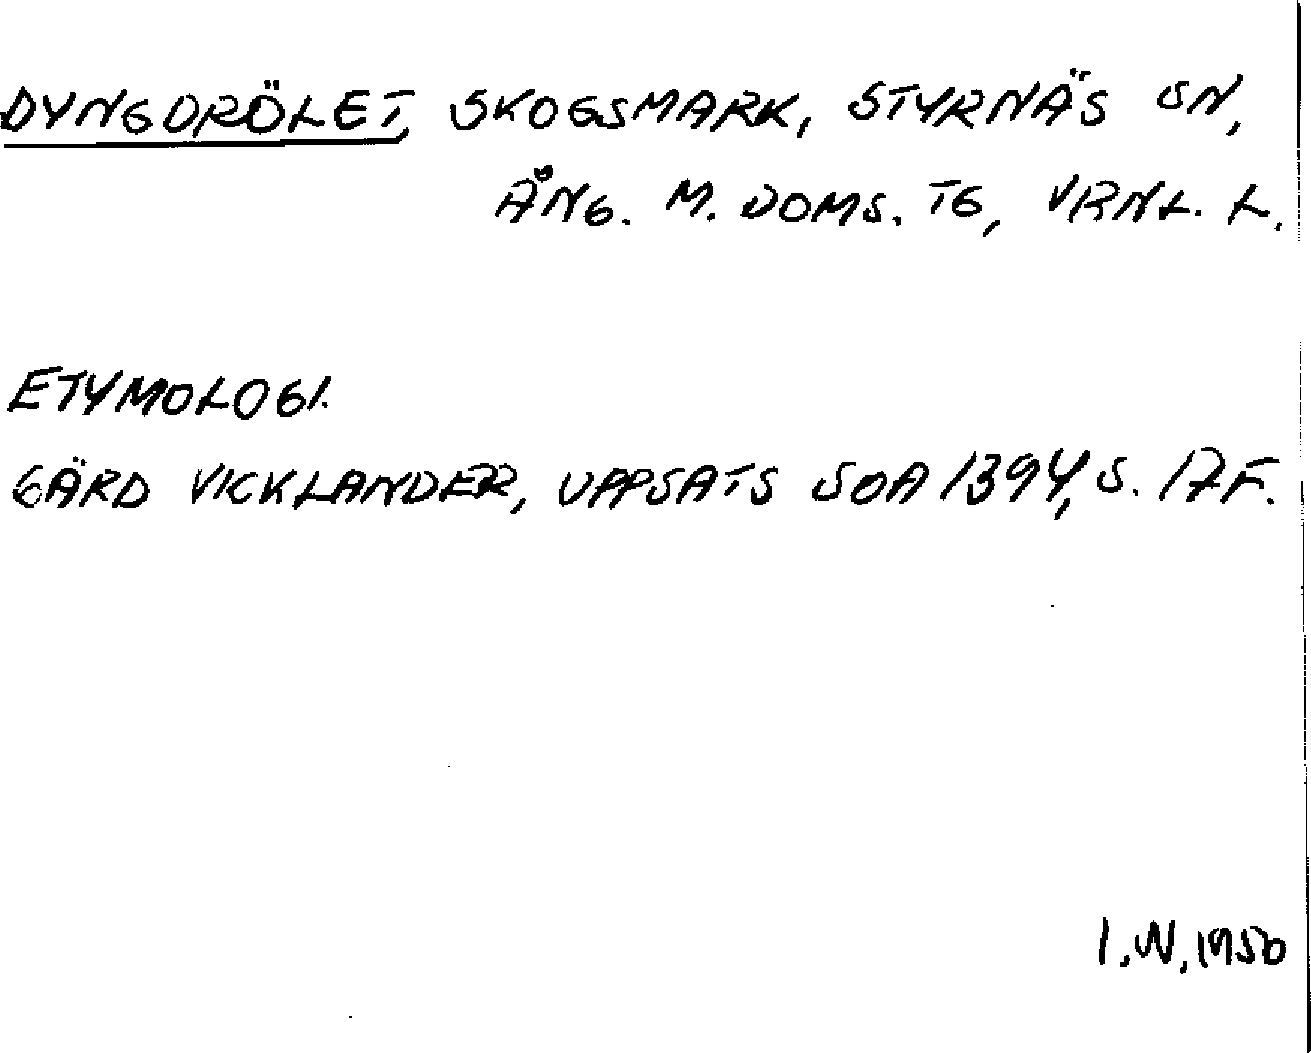 DYNGDRÖLET, SKOGSMARK, STYRNÄS SN,
ÅNG. M. DOMS. TG, VRNL. L.
ETYMOLOGI.
GÄRD VICKLANDER, UPPSATS SOA 1394, S. 17 F.
I.N, 1950